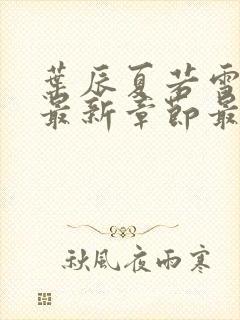 葉辰夏若雪
最新章節最
秋風夜雨寒